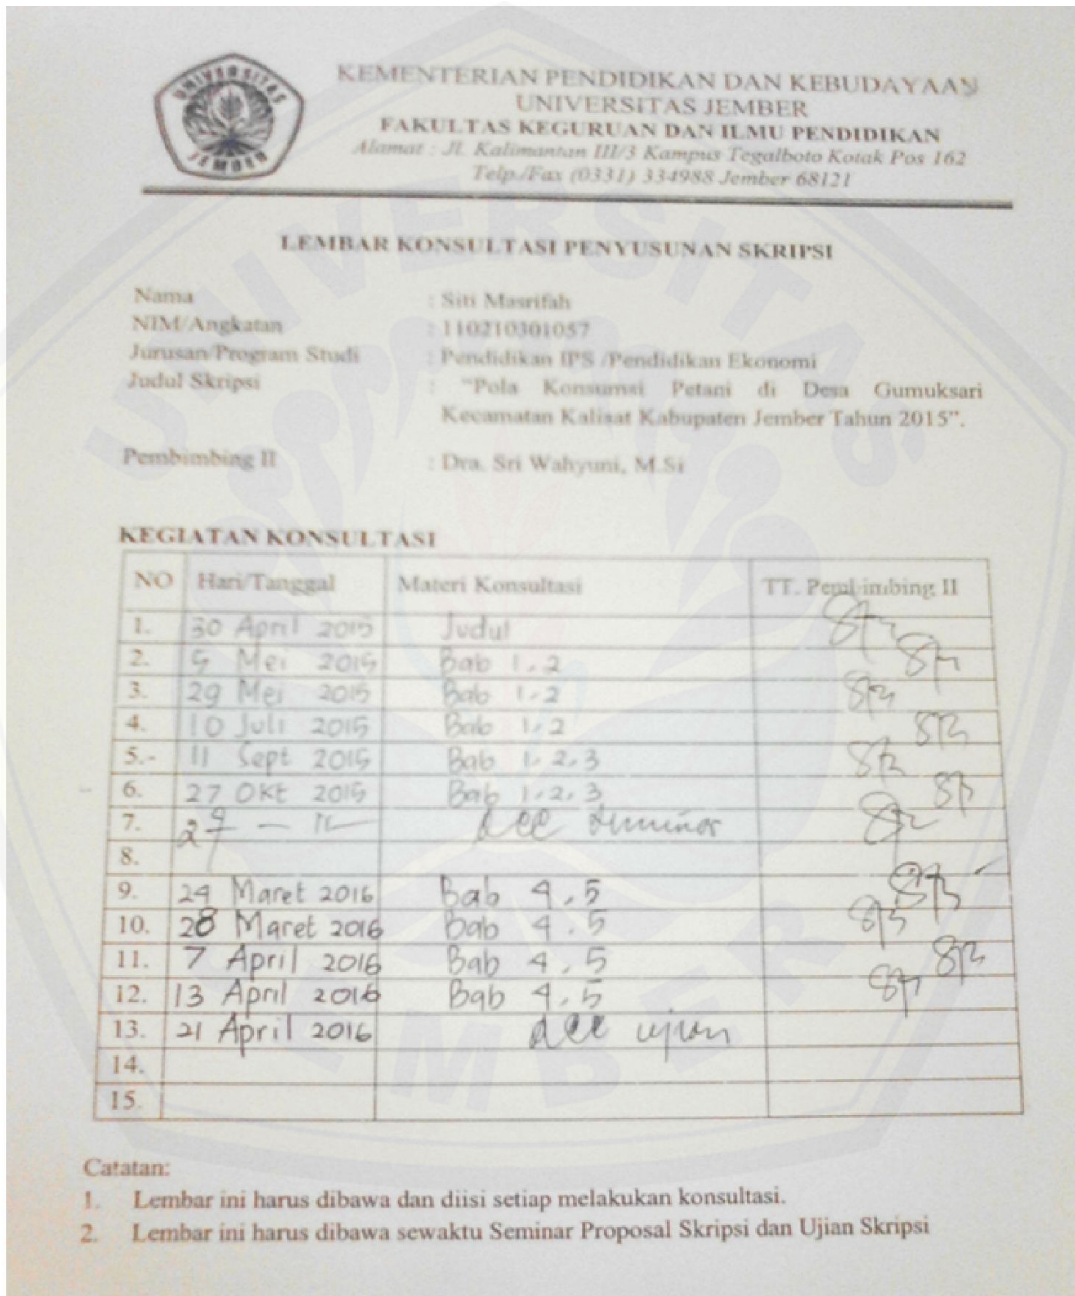 UNIVERSITAS
JEMBER
KEMENTERIAN PENDIDIKAN DAN KEBUDAYAAN
UNIVERSITAS JEMBER
FAKULTAS KEGURUAN DAN ILMU PENDIDIKAN
Alamat : Jl. Kalimantan III/3 Kampus Tegalboto Kotak Pos 162
Telp./Fax (0331) 334988 Jember 68121
LEMBAR KONSULTASI PENYUSUNAN SKRIPSI
Nama : Siti Masrifah
NIM/Angkatan : 110210301057
Jurusan/Program Studi : Pendidikan IPS /Pendidikan Ekonomi
Judul Skripsi : "Pola Konsumsi Petani di Desa Gumuksari
Kecamatan Kalisat Kabupaten Jember Tahun 2015".
Pembimbing II : Dra. Sri Wahyuni, M.Si
KEGIATAN KONSULTASI
NO Hari/Tanggal Materi Konsultasi TT. Pembimbing II
1. 30 April 2015 Judul
2. 5 Mei 2015 Bab 1.2
3. 29 Mei 2015 Bab 1.2
4. 10 Juli 2015 Bab 1.2
5.- 11 Sept 2015 Bab 1.2.3
6. 27 Okt 2015 Bab 1.2.3
7. acc seminar
8.
9. 24 Maret 2016 Bab 4.5
10. 28 Maret 2016 Bab 4.5
11. 7 April 2016 Bab 4.5
12. 13 April 2016 Bab 4.5
13. 21 April 2016 acc ujian
14.
15.
Catatan:
1. Lembar ini harus dibawa dan diisi setiap melakukan konsultasi.
2. Lembar ini harus dibawa sewaktu Seminar Proposal Skripsi dan Ujian Skripsi